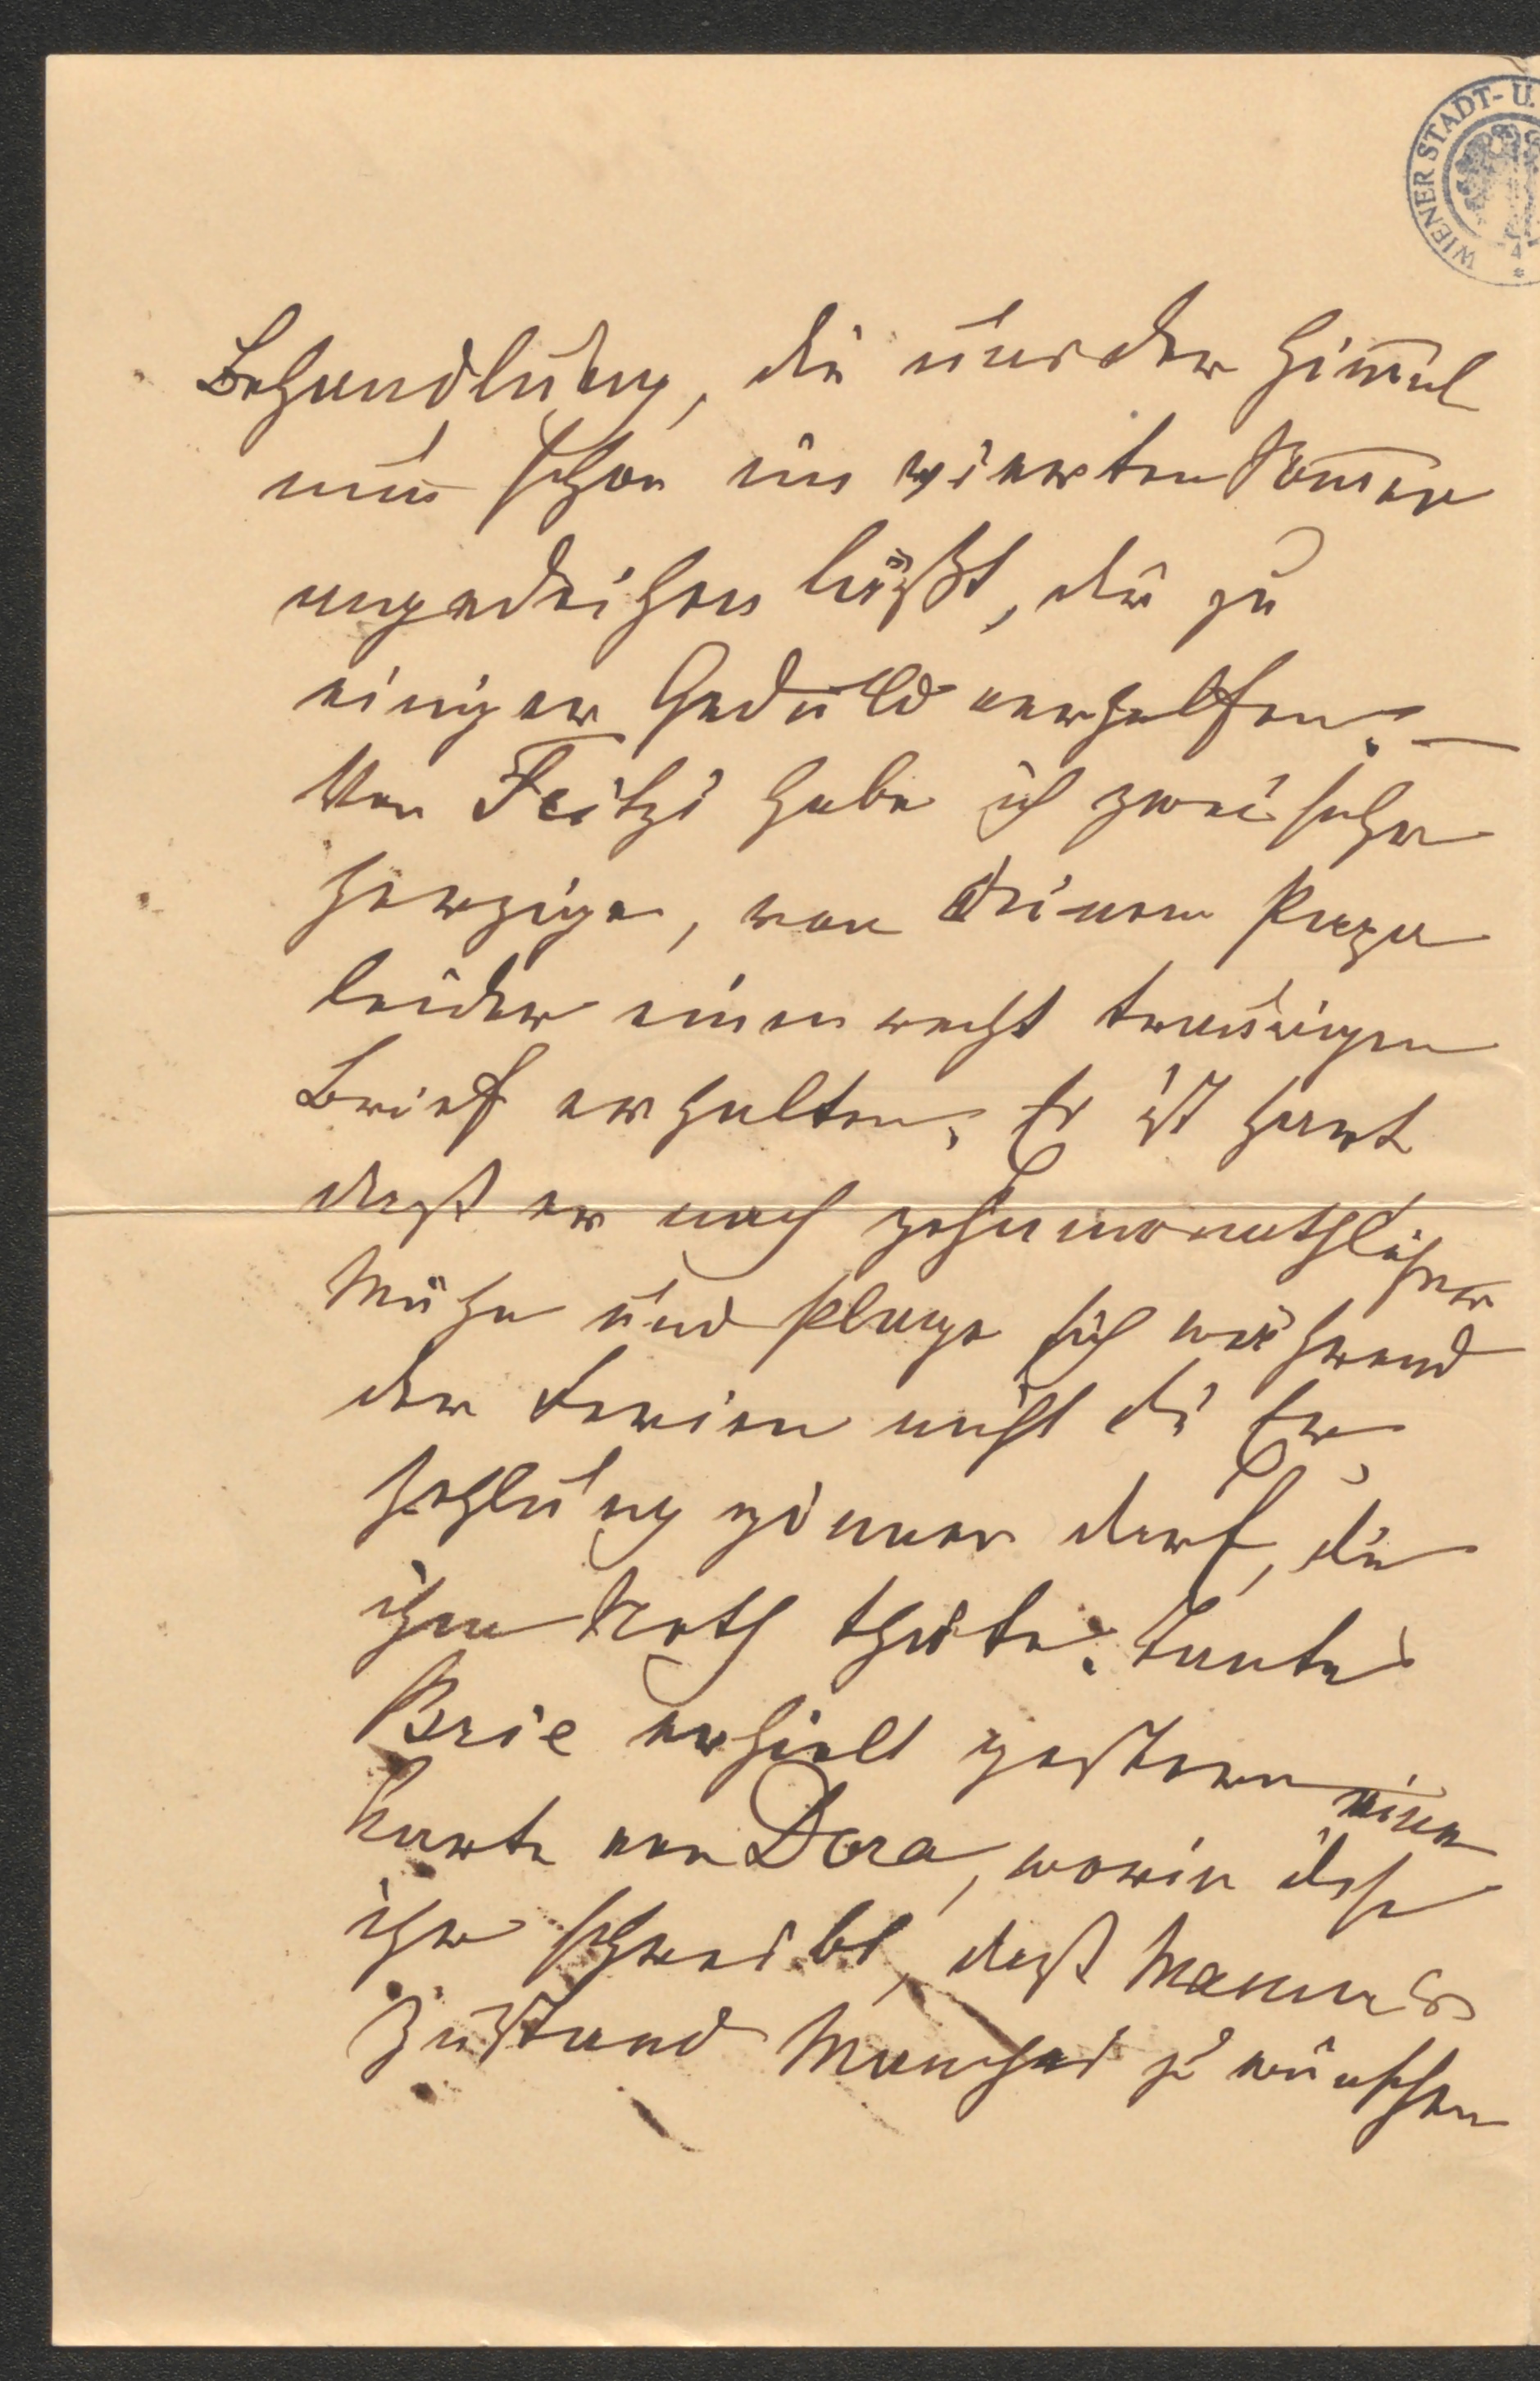 WIENER STADT- U.
Behandlung, die uns der Himmel
nun schon im vierten Sommer
angedeihen läßt, die zu
einiger Geduld verhelfen. —
Von Fritzi habe ich zwei sehr
herzige, von Deinem Papa
leider einen recht traurigen
Brief erhalten. Es ist hart
daß er nach zehnmonathlicher
Mühe und Plage sich während
der Ferien nicht die Er-
hohlung gönnen darf, die
ihm Noth thäte. Tante
Brie erhielt gestern eine
Karte von Dora, worin diese
ihr schreibt, daß Mamas
Zustand Manches zu wünschen